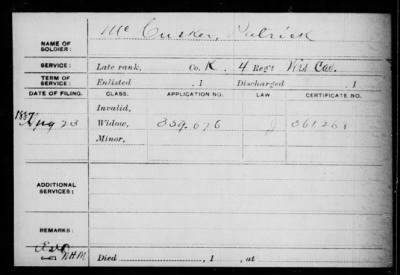 NAME OF SOLDIER: Mc Cusker, Patrick
SERVICE: Late rank, Co. K. 4 Regt Res Cav.
TERM OF SERVICE: Enlisted , 1 Discharged , 1
DATE OF FILING. CLASS. APPLICATION NO. CERTIFICATE NO.
1887 Invalid,
Aug 23 Widow, 359.676 361.268
Minor,
ADDITIONAL SERVICES:
REMARKS:
N.H.M.
Died , 1 , at